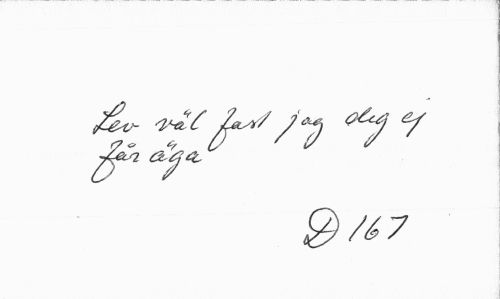 Lev väl fast jag dig ej
får äga
D 167